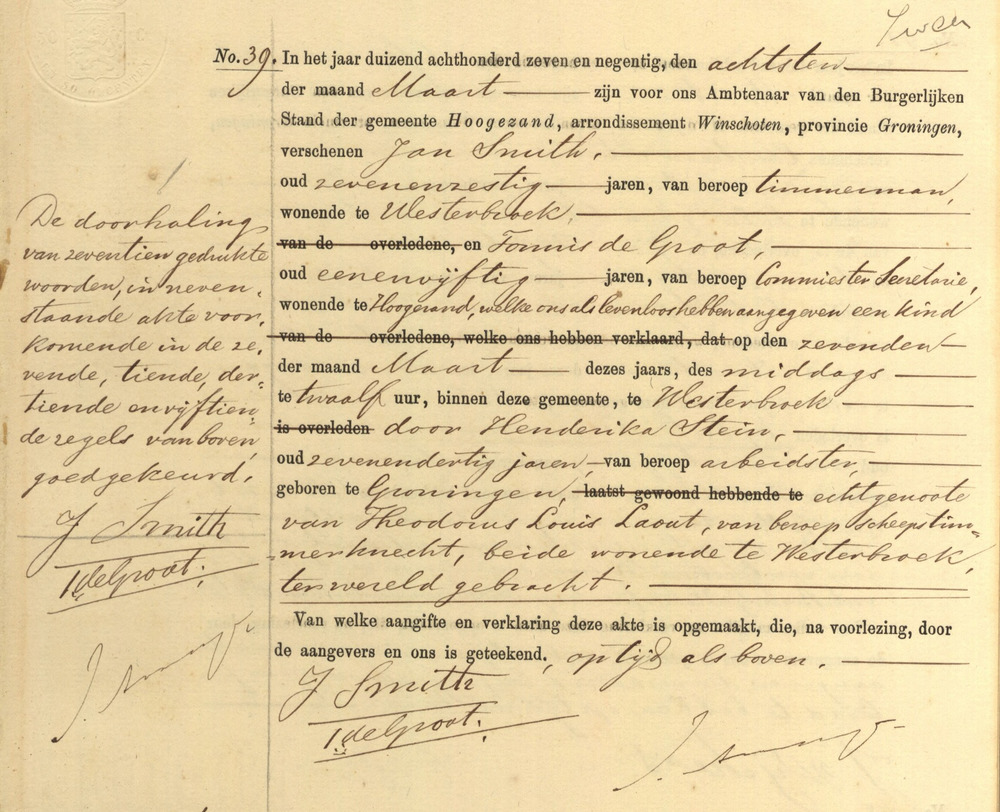 No. 39. In het jaar duizend achthonderd zeven en negentig, den achtsten
der maand Maart zijn voor ons Ambtenaar van den Burgerlijken
Stand der gemeente Hoogezand, arrondissement Winschoten, provincie Groningen,
verschenen Jan Smith,
oud zevenenzestig jaren, van beroep timmerman,
wonende te Westerbroek,
van de overledene, en Tonnis de Groot,
oud eenenvijftig jaren, van beroep Commies ter Secretarie,
wonende te Hoogezand, welke ons als levenloos hebben aangegeven een kind
van de overledene, welke ons hebben verklaard, dat op den zevenden
der maand Maart dezes jaars, des middags
te twaalf uur, binnen deze gemeente, te Westerbroek
is overleden door Henderika Stein,
oud zevenendertig jaren van beroep arbeidster,
geboren te Groningen, laatst gewoond hebbende te echtgenoote
van Theodorus Louis Laout, van beroep scheepstim=
=merknecht, beide wonende te Westerbroek,
ter wereld gebracht.
Van welke aangifte en verklaring deze akte is opgemaakt, die, na voorlezing, door
de aangevers en ons is geteekend, op tijd als boven.
J Smith
T de Groot.
De doorhaling
van zeventien gedrukte
woorden, in neven=
staande akte voor=
komende in de ze=
vende, tiende, der=
tiende en vijftien=
de regels van boven,
goedgekeurd.
J Smith
T de Groot.